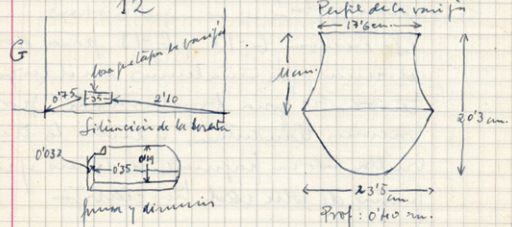 12
G
losa que tapa la vasija
0'75
35
2'10
Situación de la
0'032
0'35
0'19
forma y dimensión
Perfil de la vasija
17'6 cm.
11 cm.
20'3 cm.
23'5 cm
Prof: 0'40 m.